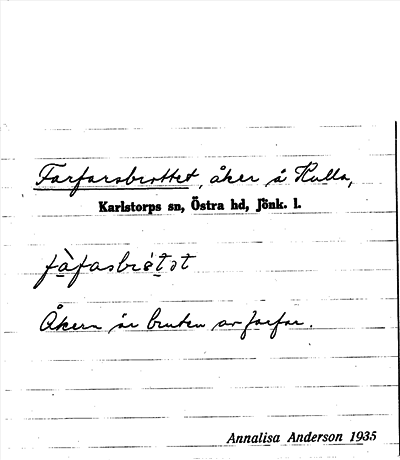 Farfarsbrottet, åker å Kulla,
Karlstorps sn, Östra hd, Jönk. l.
fàfasbrótət
Åkern är bruten av farfar.
Annalisa Anderson 1935